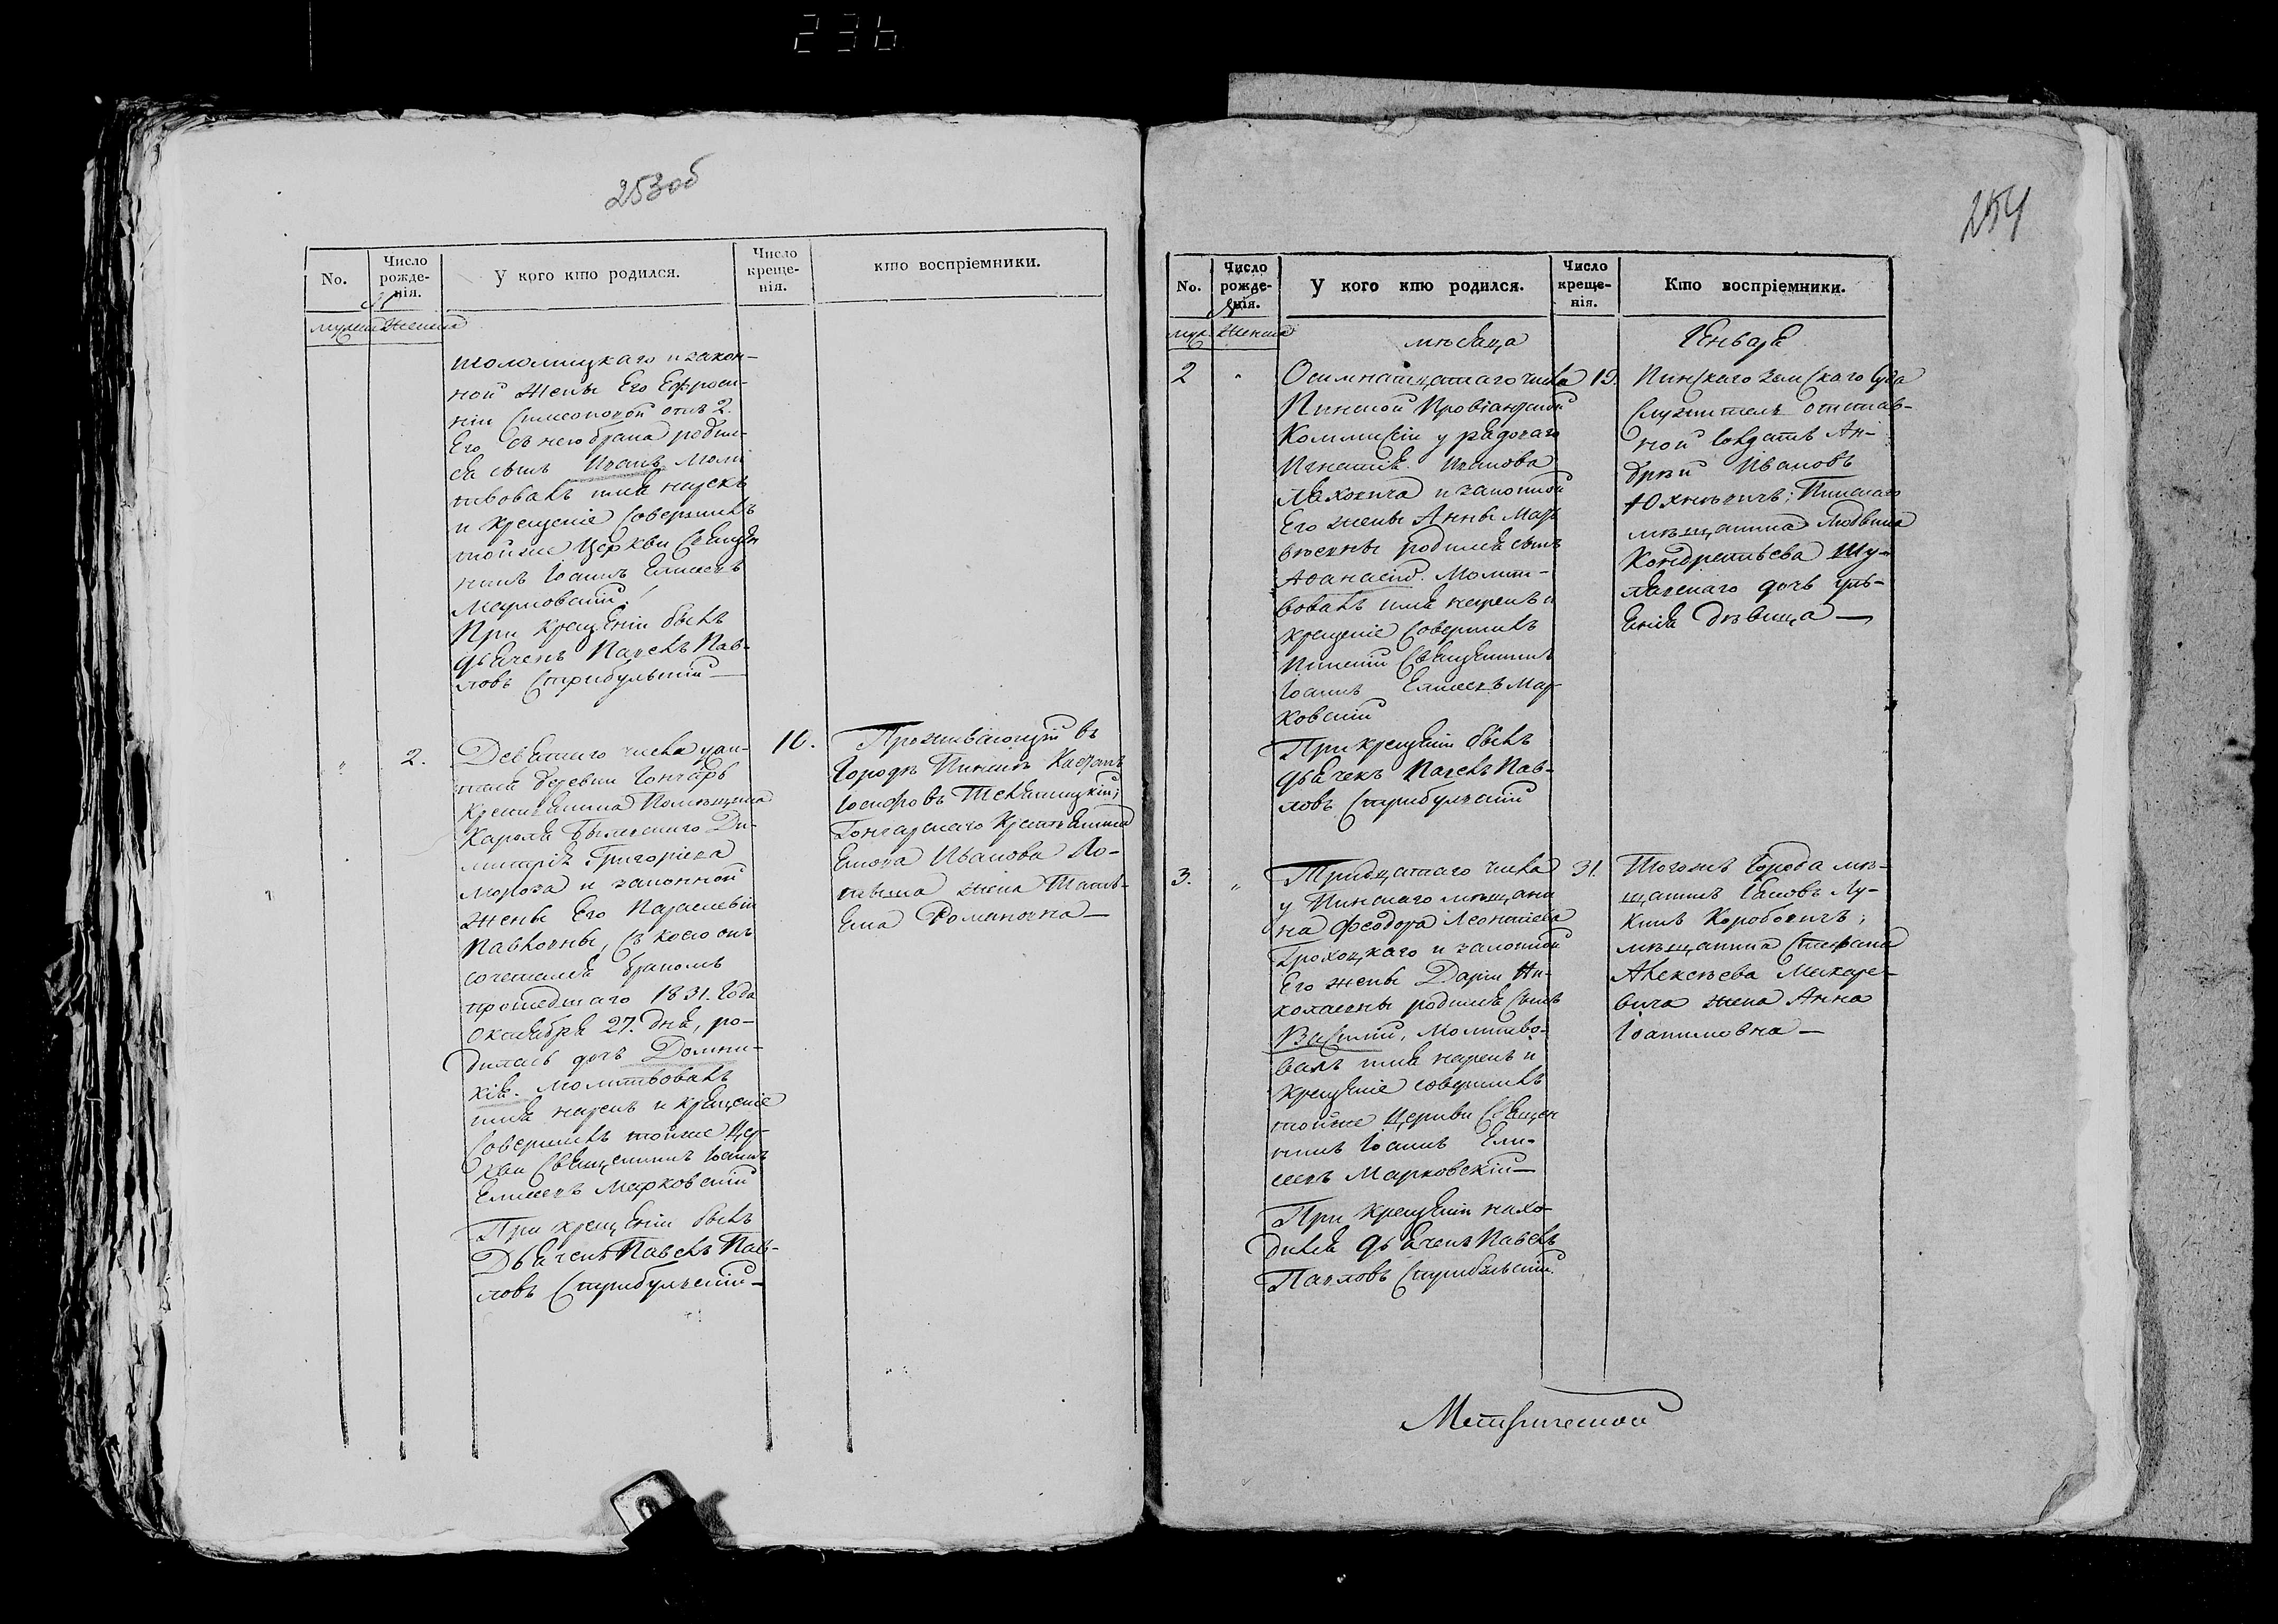 236
253об
No.
Число рожде-нія.
У кого кто родился.
Число креще-нія.
кто воспріемники.
муж. женска
ной жены Его Ефроси-
ніи Симеоновой отъ 2.
Его съ нею брака родил-
ся сынъ Иванъ Моли
твовалъ имя нарекъ
и крещеніе совершилъ
тойже Церкви Священ
никъ Іоаннъ Елисеевъ
Марковскій.
При крещеніи былъ
дьячекъ Павелъ Пав-
ловъ Стрибульскій —
2.
10.
Девятаго числа
деревни Гончаръ
крестьянина Помѣщика
Кароля Ди-
митрія Григоріева
Мороза и законной
жены Его Параскевіи
Павловны, съ коею онъ
сочетался бракомъ
прошедшаго 1831. Года
Октября 27. дня, ро-
дилась дочь Домни-
кія. Молитвовалъ
имя нарекъ и крещеніе
совершилъ тойже Цер-
кви Священникъ Іоаннъ
Елисеевъ Марковскій
При крещеніи былъ
Дьячекъ Павелъ Пав-
ловъ Стрибульскій —
Проживающій въ
Городѣ Пинскѣ
Іосифовъ
Гончарскаго Крестьянина
Иванова
жена Татья-
Романовна —
254
No.
Число рожде-нія.
У кого кто родился.
Число креще-нія.
Кто воспріемники.
муж. женска
мѣсяца
Генваря
2
19.
Осимнатцатаго числа
Пинской Провіантской
Коммисіи у рядоваго
Игнатія Иванова
и законной
Его жены Анны Мат
вѣевны родился сынъ
Аѳанасій. Молит-
вовалъ имя нарекъ и
крещеніе совершилъ
Пинскій Священникъ
Іоаннъ Елисеевъ Мар
ковскій
При крещеніи былъ
дьячекъ Павелъ Пав-
ловъ Стрибульскій
Пинскаго Земскаго Суда
служитель отстав-
ной солдатъ Ан-
дрей Ивановъ
Юхневичъ; Пинскаго
мѣщанина
Кондратьева
дочь
дѣвица —
3.
31.
Тридцатаго числа
у Пинскаго мѣщани
на Феодора Леонтіева
Грохоцкаго и законной
Его жены Даріи Ни-
колаевны родился сынъ
Василій, Молитво-
валъ имя нарекъ и
крещеніе совершилъ
тойже Церкви Священ
никъ Іоаннъ Ели-
сеевъ Марковскій —
При крещеніи нахо-
дился дьячекъ Павелъ
Павловъ Стрибульскій.
Тогожъ Города мѣ-
щанинъ Лу-
кинъ Коробовичъ;
мѣщанина Стефана
Алексѣева Макаре-
вича жена Анна
Іоакимовна —
Метрической